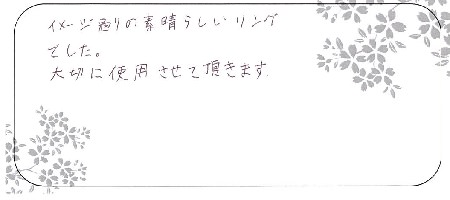 イメージ通りの素晴らしいリング
でした。
大切に使用させて頂きます.